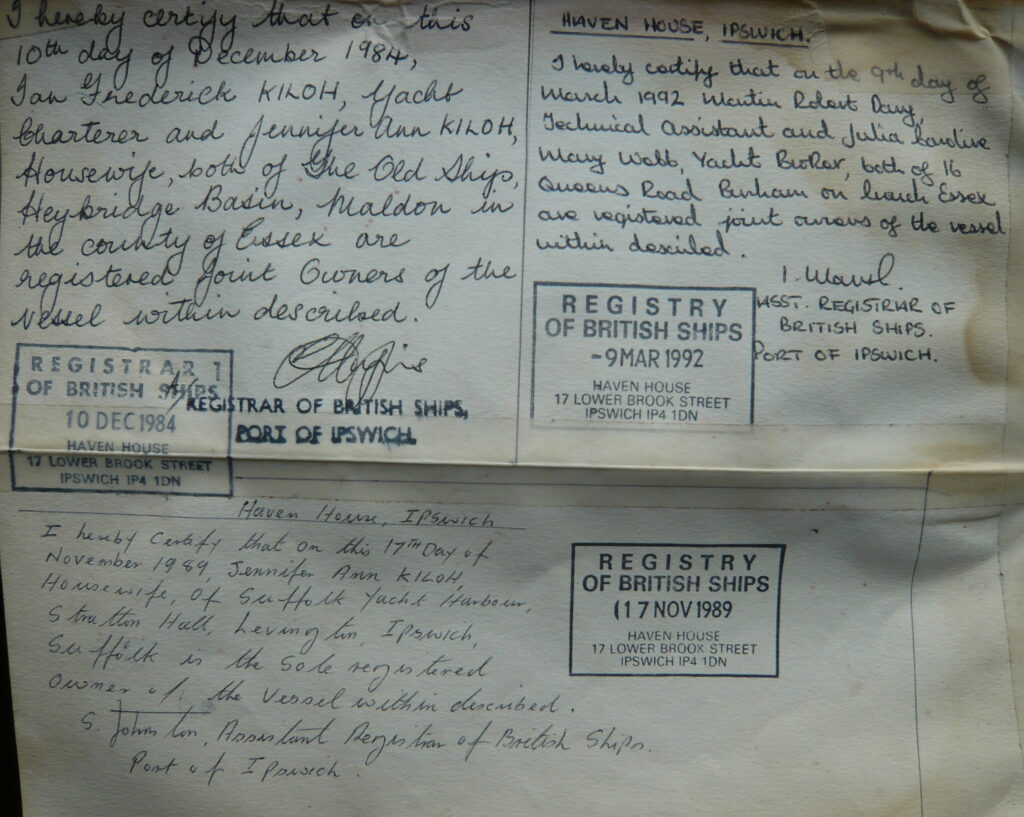 I hereby certify that on this
10th day of December 1984,
Ian Frederick KILOH, Yacht
Charterer and Jennifer Ann KILOH,
Housewife, both of The Old Ship,
Heybridge Basin, Maldon in
the county of Essex are
registered Joint Owners of the
vessel within described.
REGISTRAR
OF BRITISH SHIPS
10 DEC 1984
HAVEN HOUSE
17 LOWER BROOK STREET
IPSWICH IP4 1DN
REGISTRAR OF BRITISH SHIPS,
PORT OF IPSWICH.
HAVEN HOUSE, IPSWICH.
I hereby certify that on the 9th day of
March 1992 Martin Robert
Technical Assistant and Julia Caroline
Mary Webb, Yacht Broker, both of 16
Queens Road Burnham on Crouch Essex
are registered joint owners of the vessel
within described.
ASST. REGISTRAR OF
BRITISH SHIPS.
PORT OF IPSWICH.
REGISTRY
OF BRITISH SHIPS
-9 MAR 1992
HAVEN HOUSE
17 LOWER BROOK STREET
IPSWICH IP4 1DN
Haven House, IPSWICH
I hereby Certify that on this 17TH Day of
November 1989, Jennifer Ann KILOH,
Housewife, of Suffolk Yacht Harbour,
Stratton Hall, Levington, Ipswich,
Suffolk is the Sole registered
owner of the Vessel within described.
S. Johnston, Assistant Registrar of British Ships.
Port of Ipswich.
REGISTRY
OF BRITISH SHIPS
17 NOV 1989
HAVEN HOUSE
17 LOWER BROOK STREET
IPSWICH IP4 1DN